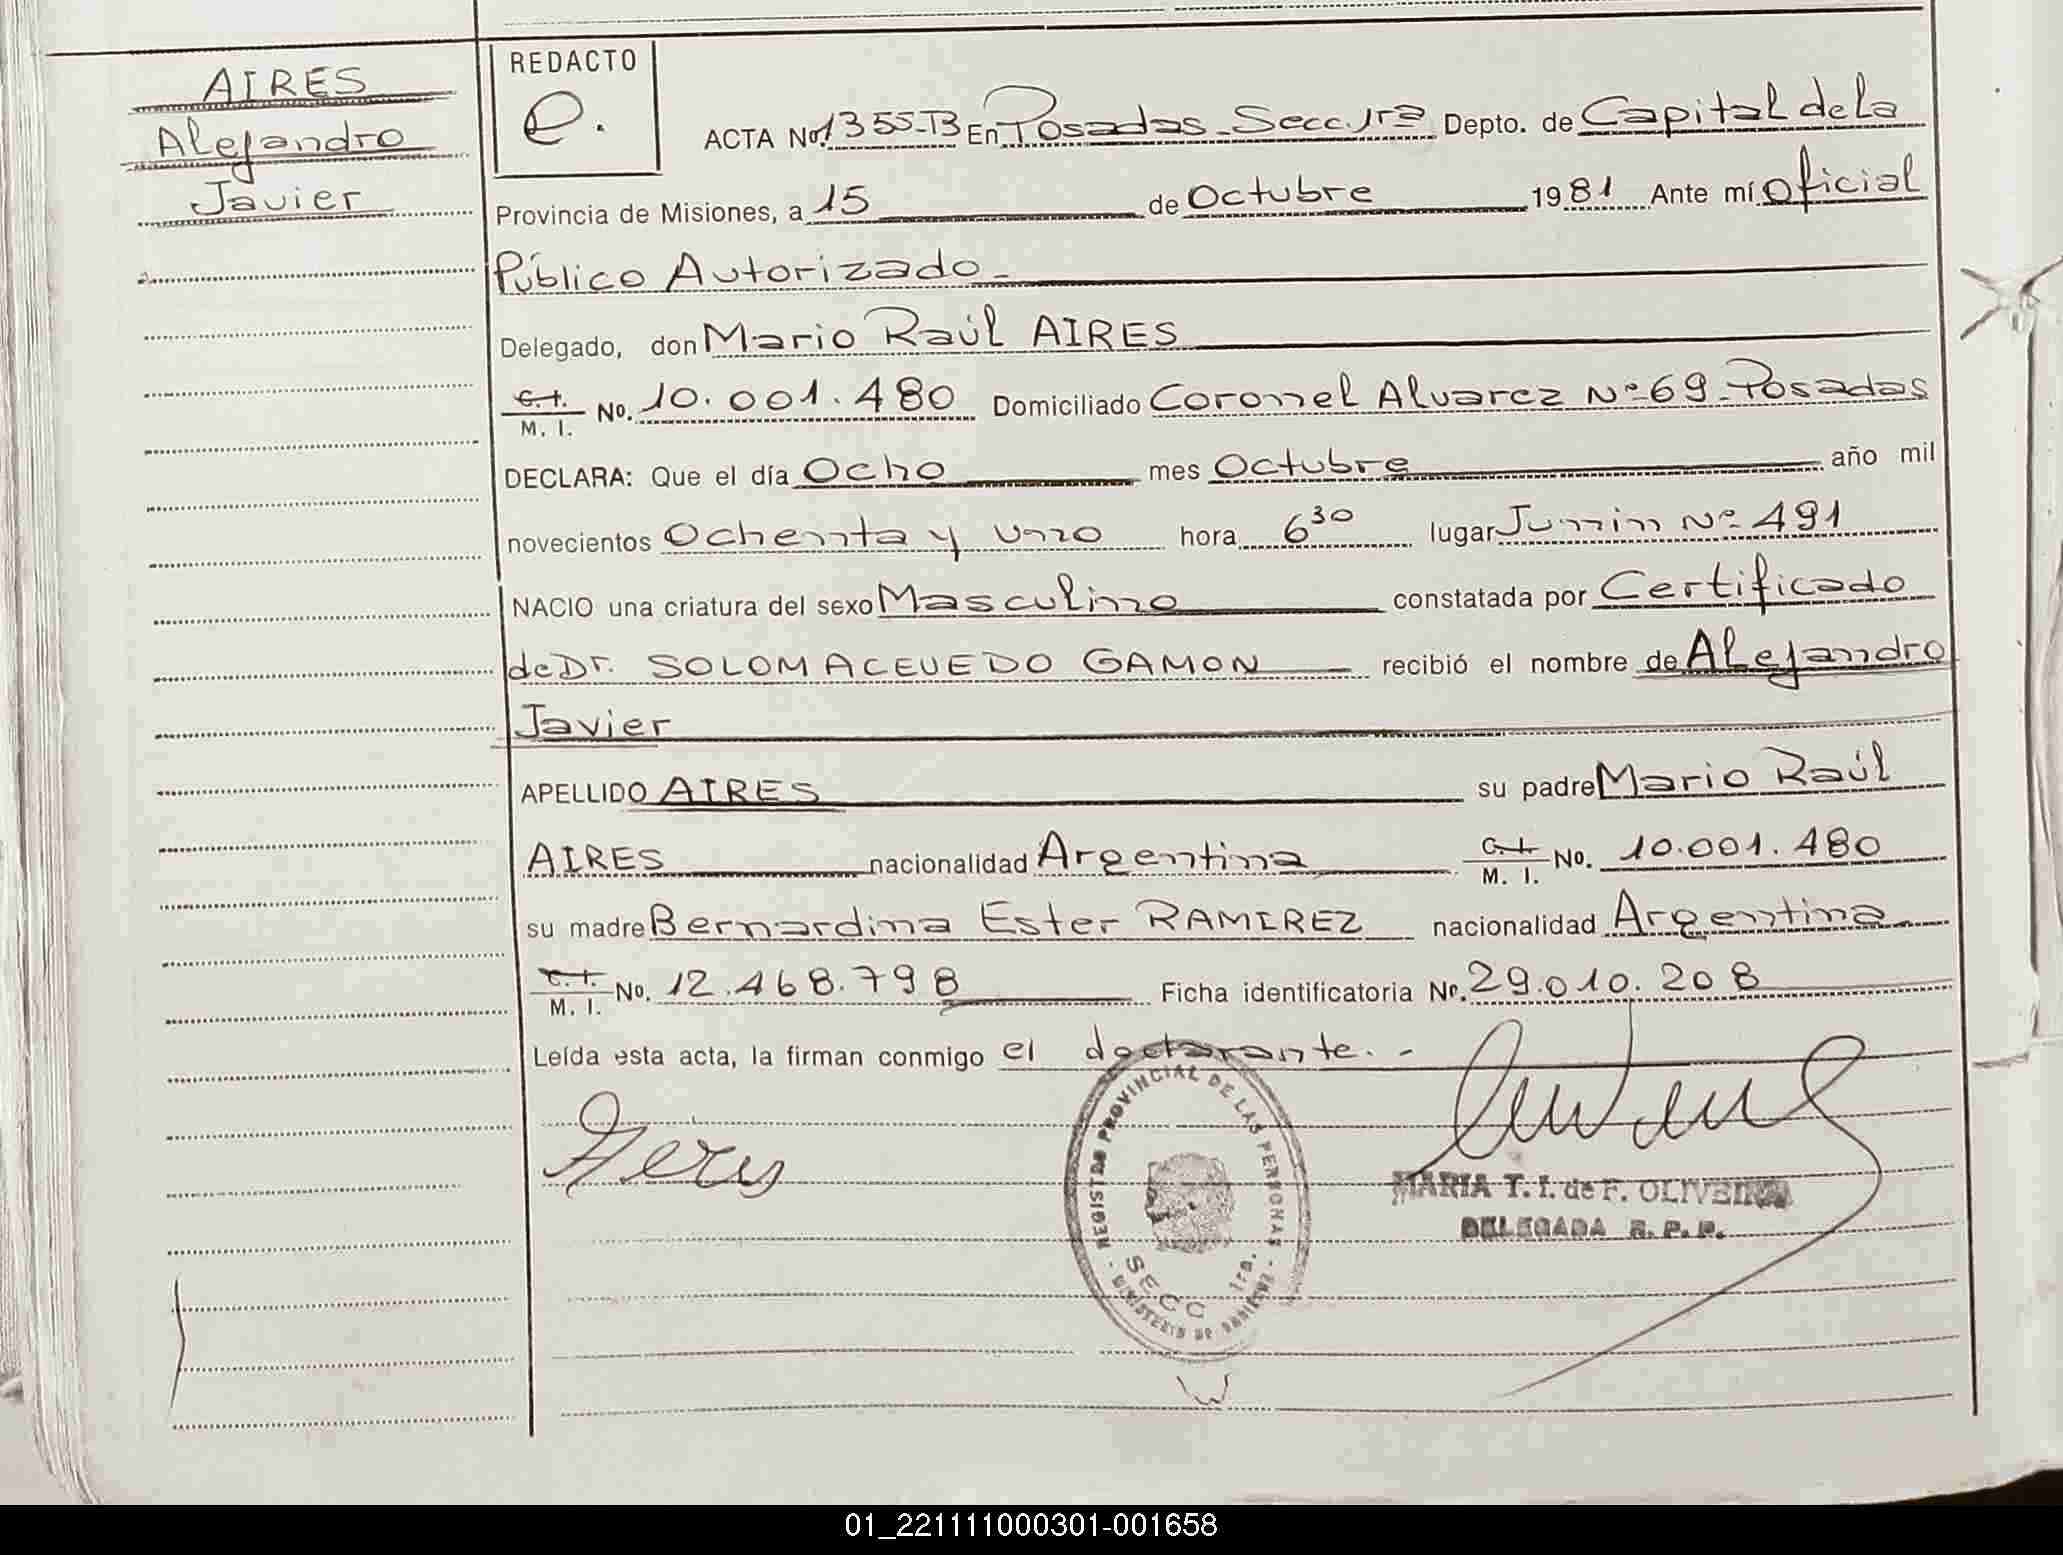 AIRES
Alejandro
Javier
REDACTO
e.
ACTA No. 1355-TB En Posadas-Secc. 1ra Depto. de Capital de la
Provincia de Misiones, a 15 de Octubre 1981 Ante mí Oficial
Público Autorizado-
Delegado, don Mario Raúl AIRES
C. I. M. I. No. 10.001.480 Domiciliado Coronel Alvarez Nº 69-Posadas
DECLARA: Que el día Ocho mes Octubre año mil
novecientos Ochenta y uno hora 6 30 lugar Junin Nº 491
NACIO una criatura del sexo Masculino constatada por Certificado
de Dr. SOLOM ACEVEDO GAMON recibió el nombre de Alejandro
Javier
APELLIDO AIRES su padre Mario Raúl
AIRES nacionalidad Argentina C. I. M. I. No. 10.001.480
su madre Bernardina Ester RAMIREZ nacionalidad Argentina
C. I. M. I. No. 12.468.798 Ficha identificatoria Nº. 29.010.208
Leída esta acta, la firman conmigo el declarante.-
REGISTRO PROVINCIAL DE LAS PERSONAS
SECC 1ra.
MINISTERIO DE GOBIERNO
MARIA T. I. de F. OLIVEIRA
DELEGADA R. P. P.
01_221111000301-001658